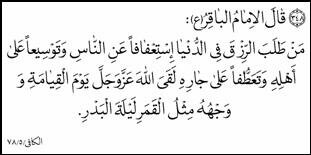 ﴿٣٤٨﴾ قَالَ الإِمَامُ البَاقِرُ(ع):
مَنْ طَلَبَ الرِّزْقَ فِى الدُّنْيَا إِسْتِعْفَافاً عَنِ النَّاسِ وَتَوْسِيعاً عَلىٰ
أَهْلِهِ وَتَعَطُّفاً عَلىٰ جَارِهِ لَقَىَ اللهَ عَزَّوَجَلَّ يَوْمَ الْقِيَامَةِ وَ
وَجْهُهُ مِثْلُ الْقَمَرِ لَيْلَةَ الْبَدْرِ.
الكافى/٥/٧٨